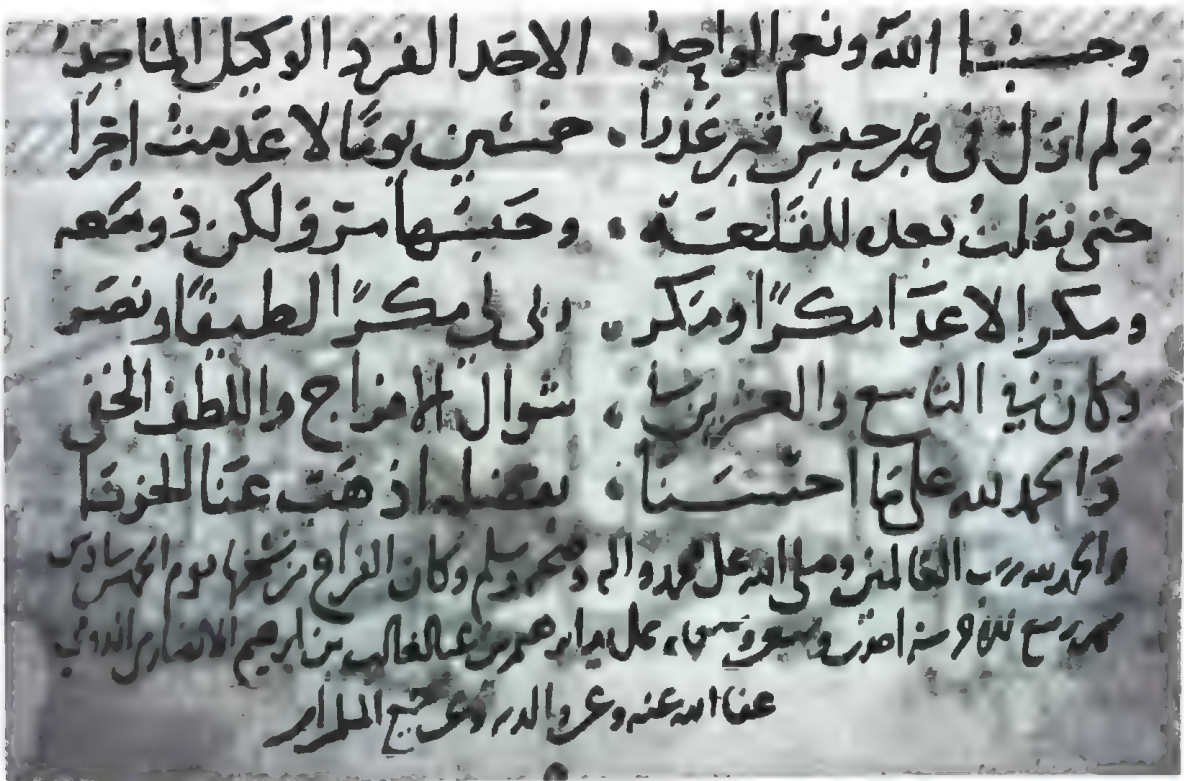 وحسبنا الله ونعم الواحد . الاحد الفرد الوكيل الماجد
ولم ازل في حبس قبر عذرا . خمسين يوما لا عدمت اجرا
حتى نقلت بعد للقلعة . وحبسها مر ولكن ذو سعه
ومكر الاعدا مكرا ومكر . لي مكرا لطيفا ونصر
وكان في التاسع والعشرين . شوال الافراج واللطف الخفي
والحمد لله على ما احسنا . بفضله اذهب عنا الحزنا
والحمد لله رب العالمين وصلى الله على محمد واله وصحبه وسلم وكان الفراغ من نسخها يوم الخميس سادس
شهر ربيع سنة احدى على يد ابراهيم بن عبد الغالب بن ابراهيم الانصاري
عفا الله عنه وعن والديه وعن جميع المسلمين